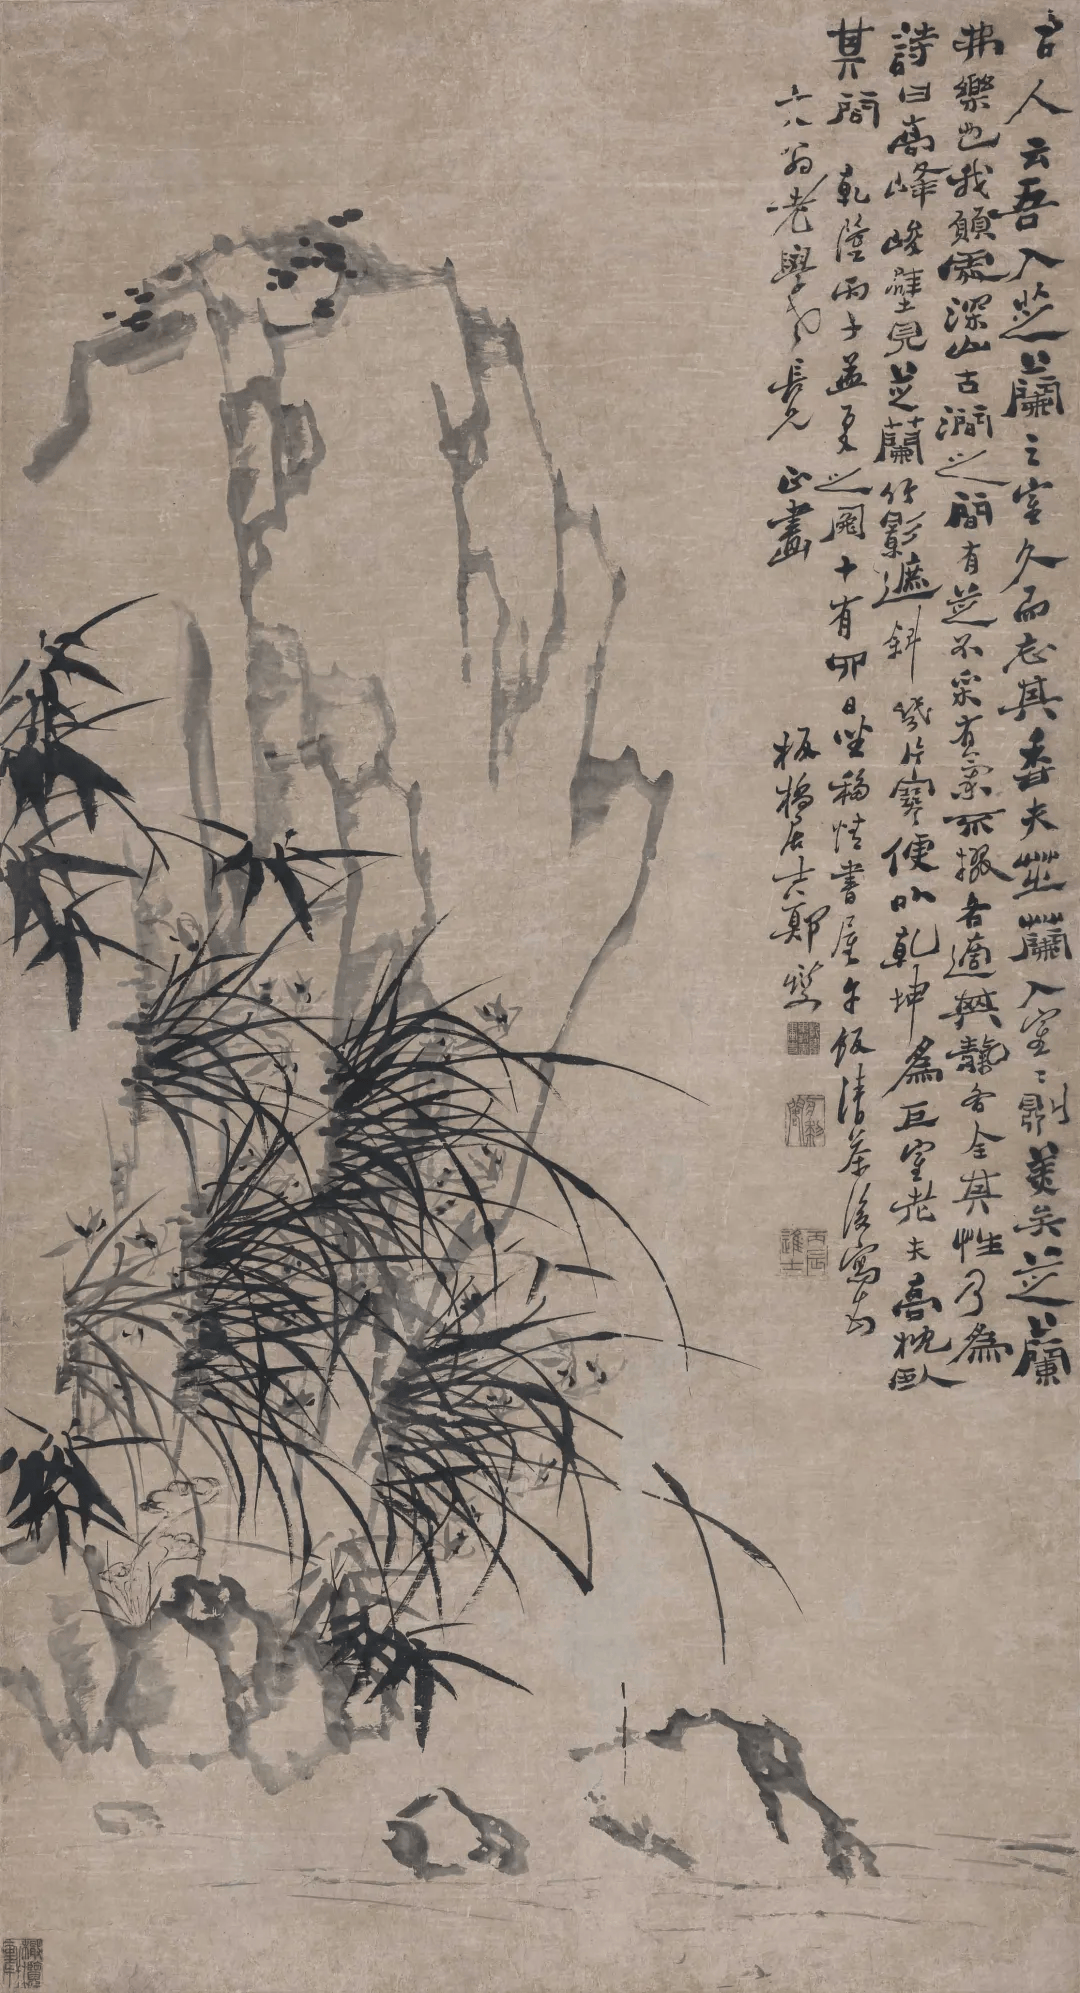 古人云吾入芝蘭之室久而忘其香夫芝蘭入室室則美矣芝蘭
弗樂也我願處深山古澗之間有芝不采有蘭不掇各適其天各全其性乃為
詩曰高峰峻壁見芝蘭竹影遮斜幾片寒便以乾坤為巨室老夫高枕臥
其間 乾隆丙子孟夏之月十有 日坐移情書屋午飯清茶後寫
六 翁老學長兄 正畫
板橋居士鄭燮
丙辰進士